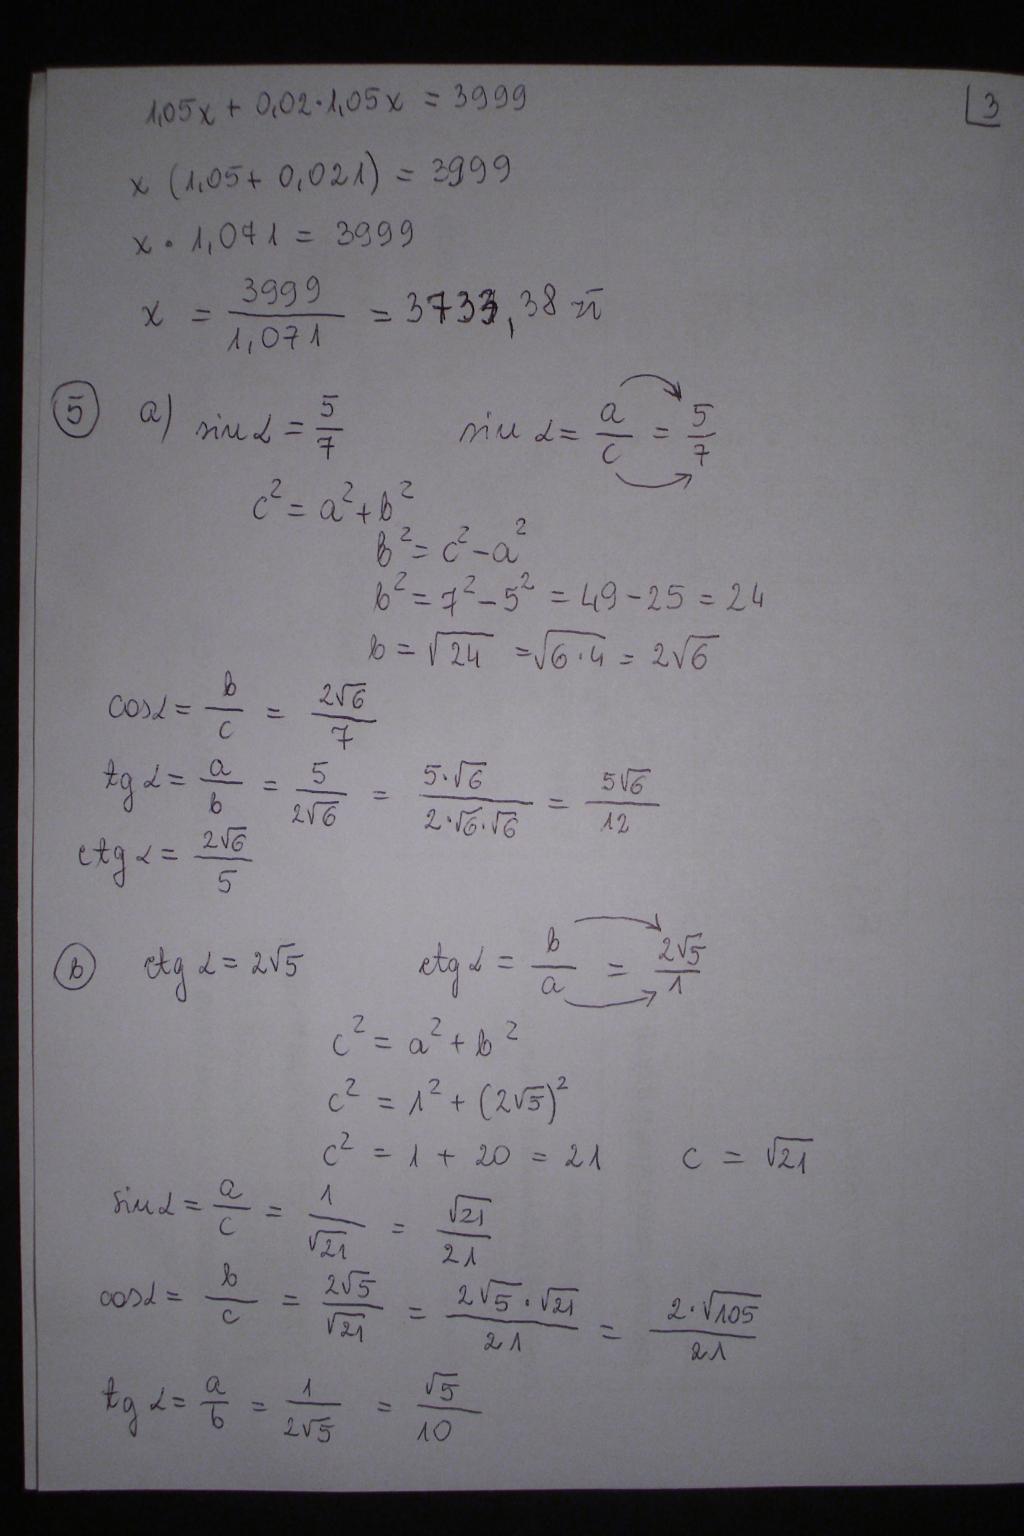 3
1,05x + 0,02·1,05x = 3999
x (1,05 + 0,021) = 3999
x · 1,071 = 3999
x = 3999/1,071 = 3733,38 zł
5 a) sin α = 5/7 sin α = a/c = 5/7
c² = a² + b²
b² = c² - a²
b² = 7² - 5² = 49 - 25 = 24
b = √24 = √6·4 = 2√6
cos α = b/c = 2√6/7
tg α = a/b = 5/2√6 = 5·√6/2·√6·√6 = 5√6/12
ctg α = 2√6/5
b ctg α = 2√5 ctg α = b/a = 2√5/1
c² = a² + b²
c² = 1² + (2√5)²
c² = 1 + 20 = 21 c = √21
sin α = a/c = 1/√21 = √21/21
cos α = b/c = 2√5/√21 = 2√5·√21/21 = 2·√105/21
tg α = a/b = 1/2√5 = √5/10